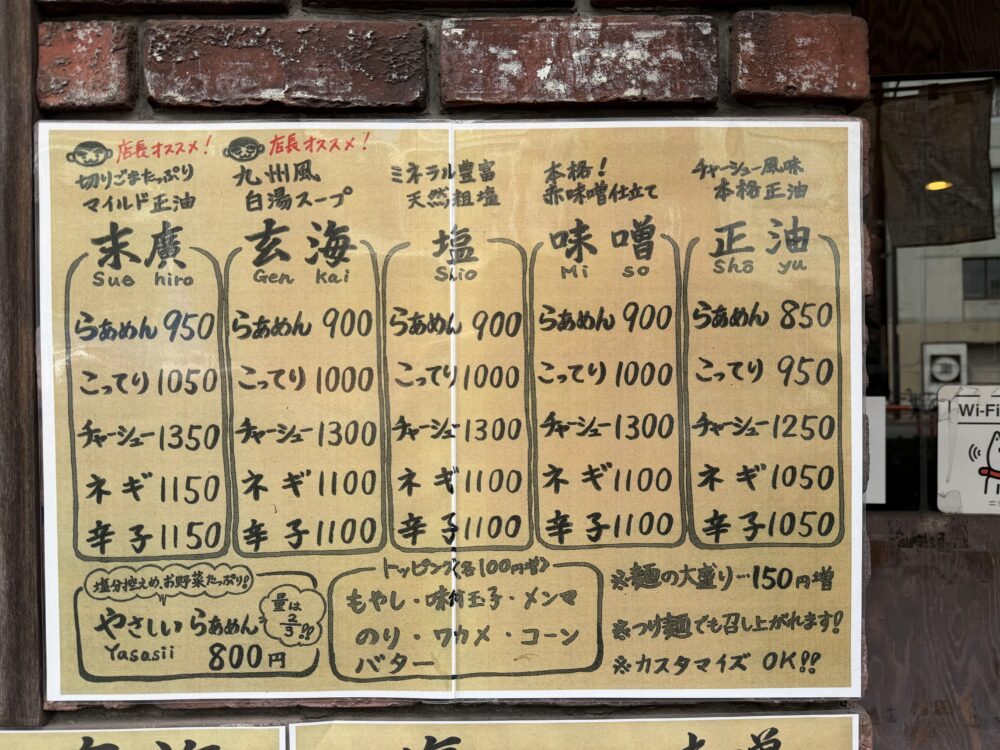 店長オススメ!
切りごまたっぷり
マイルド正油
末廣
Sue hiro
らぁめん 950
こってり 1050
チャーシュー 1350
ネギ 1150
辛子 1150
店長オススメ!
九州風
白湯スープ
玄海
Gen kai
らぁめん 900
こってり 1000
チャーシュー 1300
ネギ 1100
辛子 1100
ミネラル豊富
天然粗塩
塩
Shio
らぁめん 900
こってり 1000
チャーシュー 1300
ネギ 1100
辛子 1100
本格!
赤味噌仕立て
味噌
Mi so
らぁめん 900
こってり 1000
チャーシュー 1300
ネギ 1100
辛子 1100
チャーシュー風味
本格正油
正油
Shō yu
らぁめん 850
こってり 950
チャーシュー 1250
ネギ 1050
辛子 1050
塩分控えめ、お野菜たっぷり!
やさしいらぁめん
Yasasii 800円
量は
2/3!!
トッピング<各100円増>
もやし・味付玉子・メンマ
のり・ワカメ・コーン
バター
※麺の大盛り…150円増
※つけ麺でも召し上がれます!
※カスタマイズ OK!!
Wi-Fi